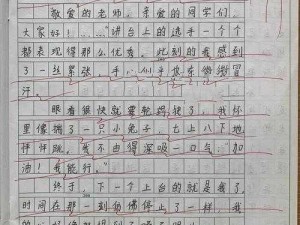 敬爱的老师，亲爱的同学们，
大家好！……"讲台上的选手一个个
都表现得那么优秀。此刻的我感到
了一丝紧张，手心
汗。
眼看很快就要轮到我了，我怀
里像揣了一只小兔子，七上八下地
怦怦跳。我不由得深吸一口气："加
油！我能行。"
终于，下一个上台的就是我了，
时间在那一刻仿佛停止了一样，我